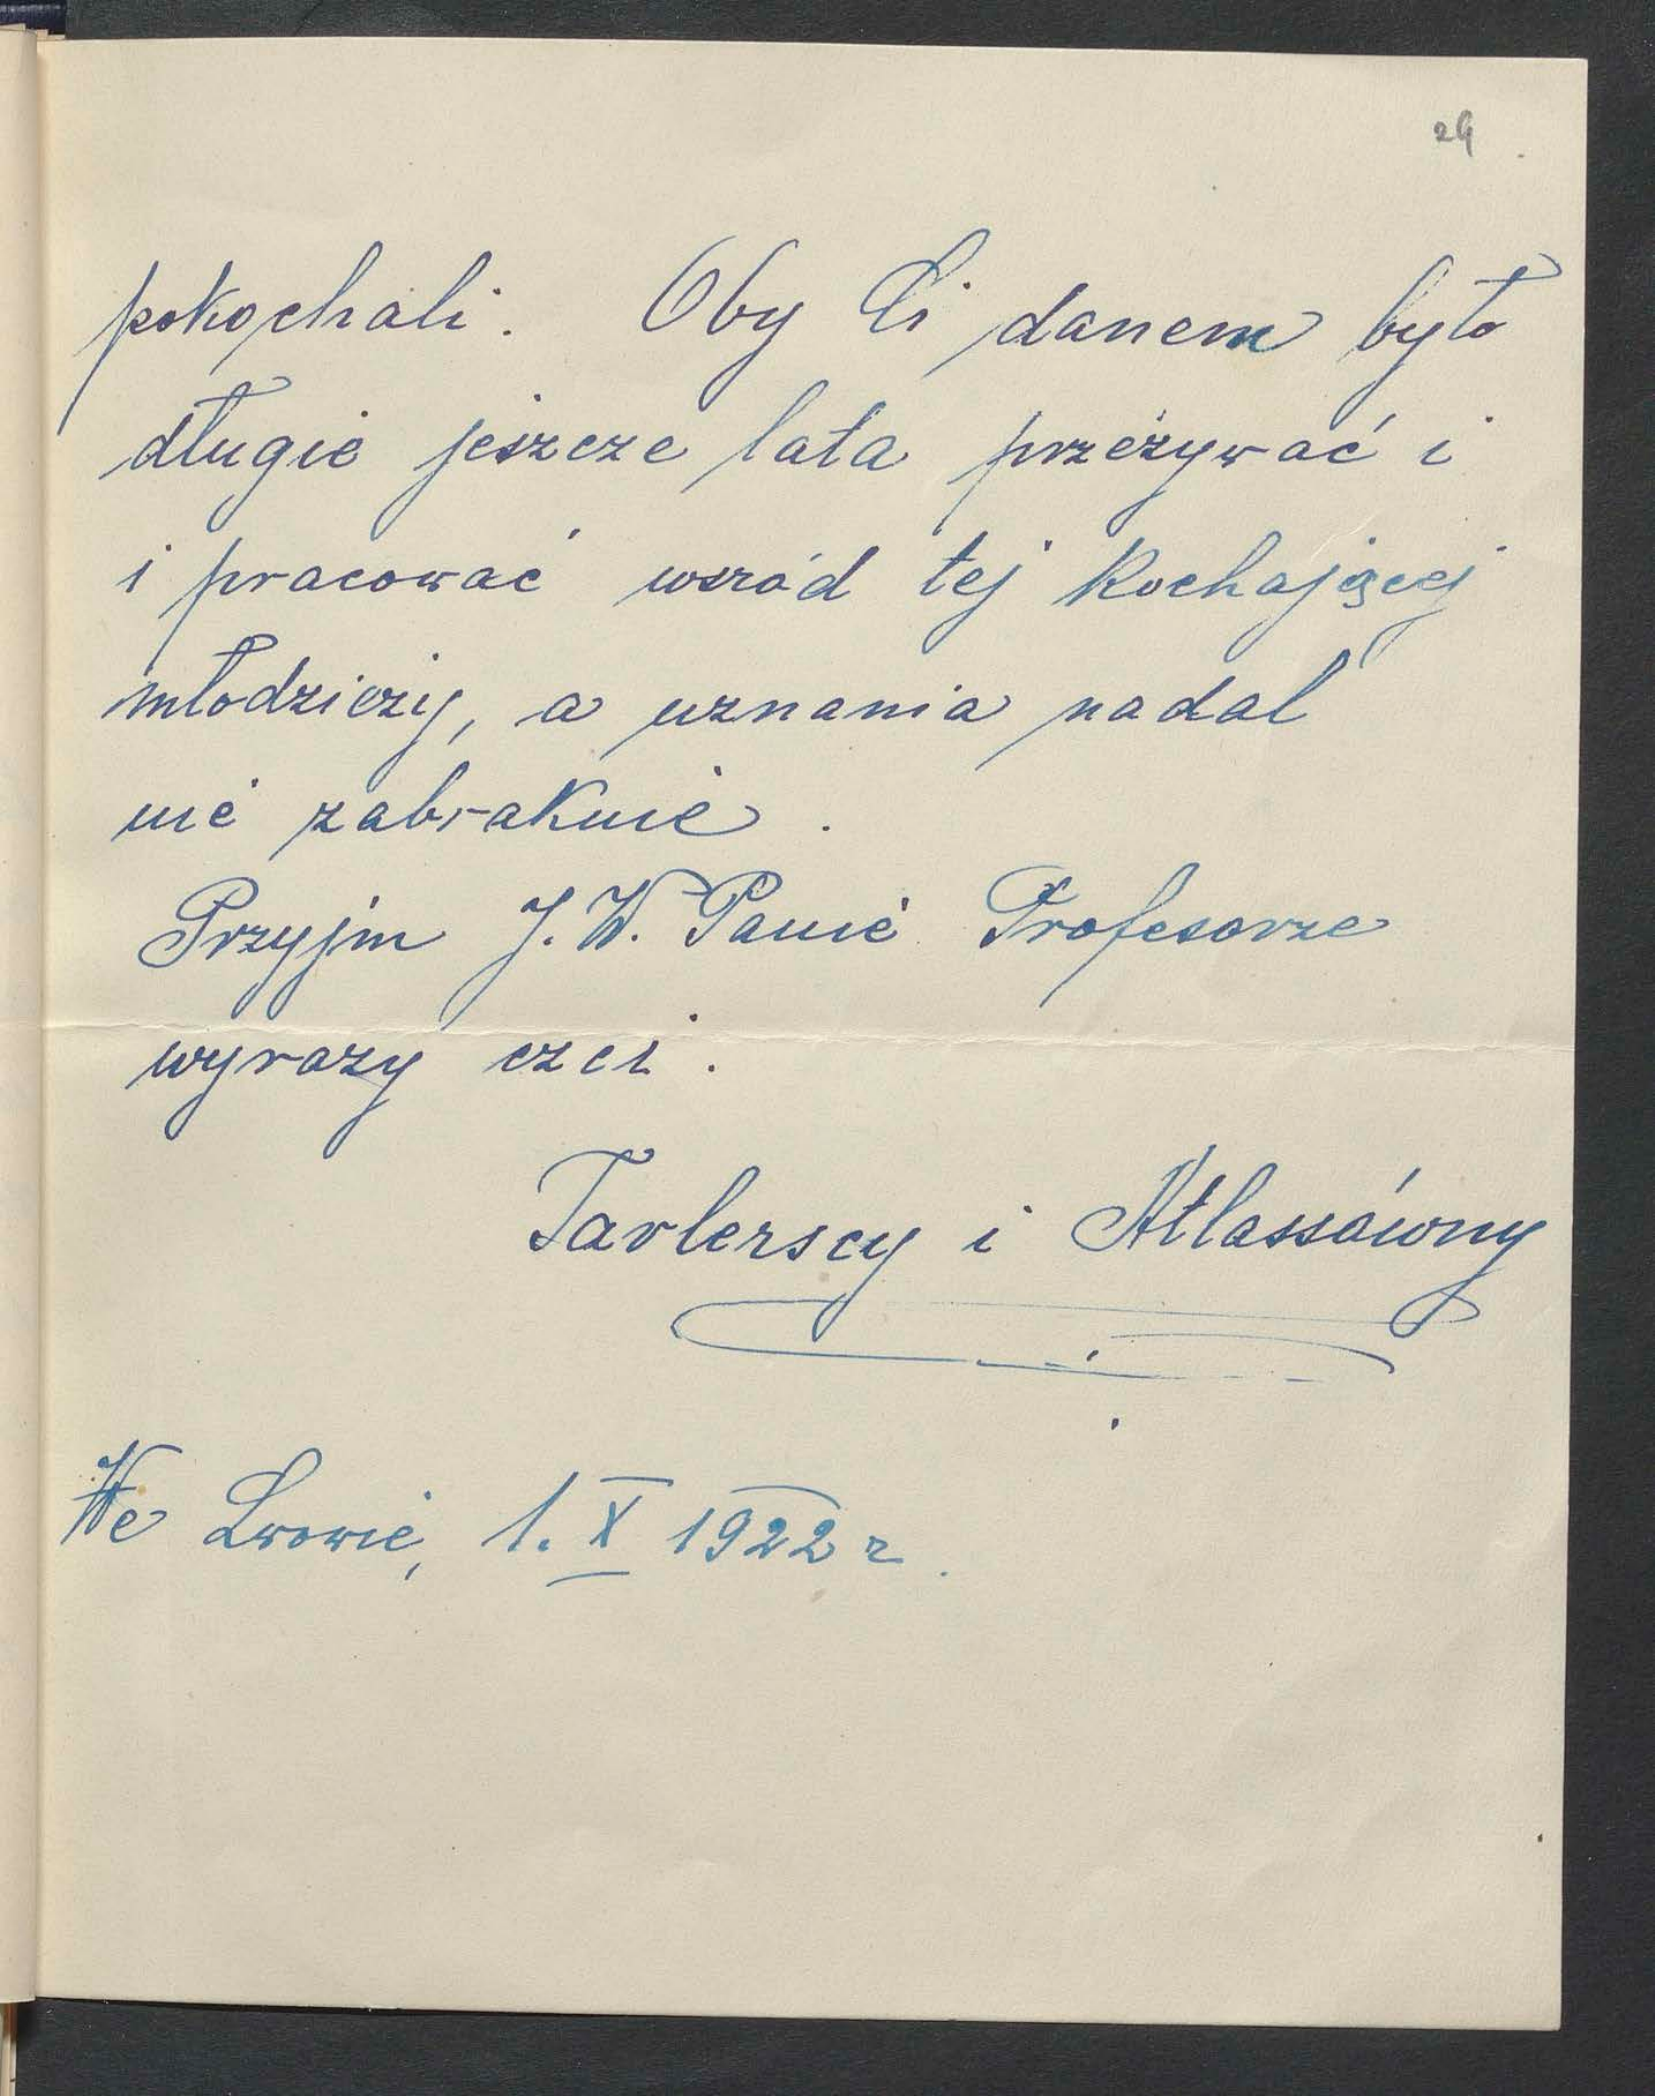 24
pokochali. Oby Ci danem było
długie jeszcze lata przeżywać i
i pracować wśród tej kochającej
młodzieży, a uznania nadal
nie zabraknie.
Przyjm J. W. Panie Profesorze
wyrazy czci.
Tavlerscy i Atlassówny
We Lwowie, 1. X 1922 r.